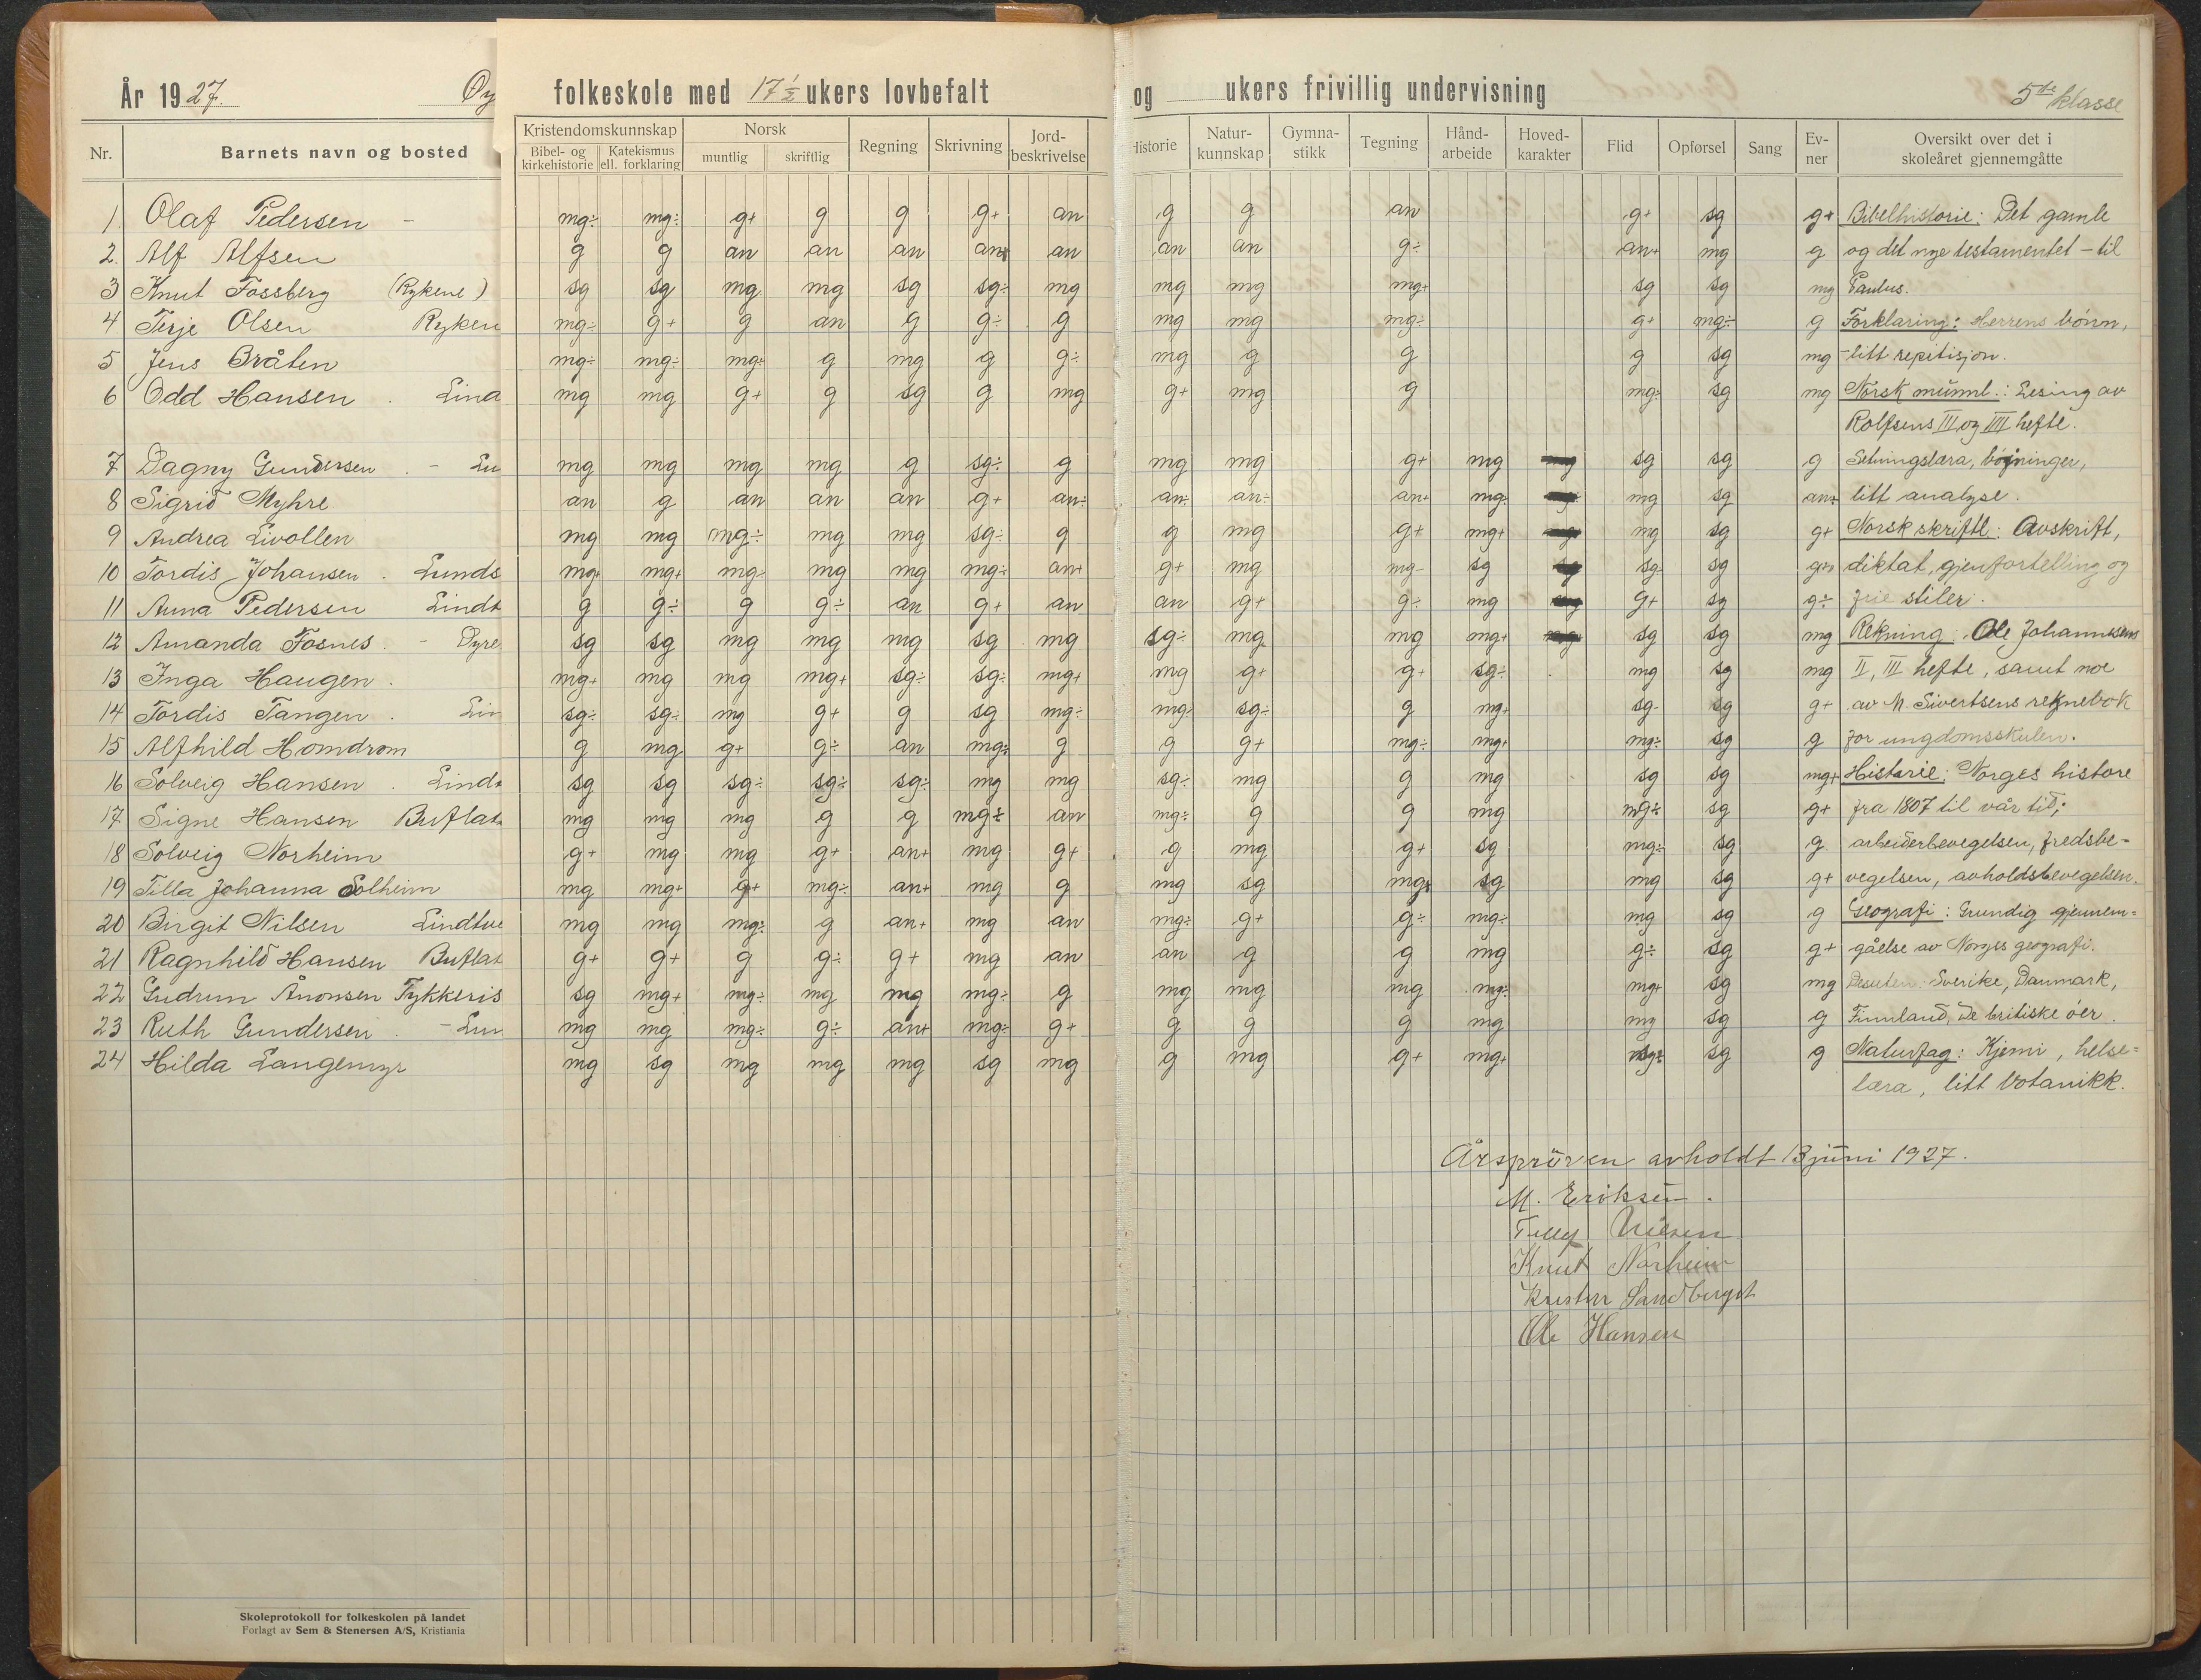 År 1927. Øy folkeskole med 17 1/2 ukers lovbefalt og ukers frivillig undervisning 5te klasse
Nr. Barnets navn og bosted Kristendomskunnskap Bibel- og kirkehistorie Katekismus ell. forklaring Norsk muntlig skriftlig Regning Skrivning Jord-beskrivelse Historie Natur-kunnskap Gymna-stikk Tegning Hånd-arbeide Hoved-karakter Flid Opførsel Sang Ev-ner Oversikt over det i skoleåret gjennemgåtte
1. Olaf Pedersen - mg÷ mg÷ g+ g g g+ an g g an g+ sg g+ Bibelhistorie: Det gamle
2. Alf Alfsen g g an an an an an an an g÷ an+ mg g og det nye testamentet - til
3 Knut Fossberg (Rykene) sg sg mg mg sg sg÷ mg mg mg mg+ sg sg mg Paulus.
4 Terje Olsen Ryken mg÷ g+ g an g g÷ g mg mg mg÷ g+ mg÷ g Forklaring: Herrens bönn,
5 Jens Bråten mg÷ mg÷ mg÷ g mg g g÷ mg g g g sg mg - litt repitisjon.
6 Odd Hansen . Lind mg mg g+ g sg g mg g+ mg g mg÷ sg mg Norsk munnl.: Lesing av
Rolfsens III og IIII hefte.
7 Dagny Gundersen . - Lu mg mg mg mg g sg÷ g mg mg g+ mg sg sg g Setningslæra, böyninger,
8 Sigrid Myhre an g an an an g+ an÷ an÷ an÷ an+ mg÷ mg sg an+ litt analyse.
9 Andrea Livollen mg mg mg÷ mg mg sg÷ g g mg g+ mg+ mg sg g+ Norsk skriftl: Avskrift,
10 Tordis Johansen . Lunds mg+ mg+ mg÷ mg mg mg÷ an+ g+ mg mg- sg sg÷ sg g+ diktat, gjenfortelling og
11 Anna Pedersen Lindt g g÷ g g÷ an g+ an an g+ g÷ mg g+ sg g÷ frie stiler.
12 Amanda Fosnes . - Dyre sg sg mg mg mg sg mg sg÷ mg mg mg+ sg sg mg Rekning: Ole Johannesens
13 Inga Haugen . mg+ mg mg mg+ sg÷ sg÷ mg+ mg g+ g+ sg÷ mg sg mg II, III hefte, samt noe
14 Tordis Tangen . Lin sg÷ sg÷ mg g+ g sg mg÷ mg÷ sg÷ g mg+ sg- sg g+ av M. Sivertsens reknebok
15 Alfhild Homdrom g mg g+ g÷ an mg÷ g g g+ mg÷ mg+ mg÷ sg g for ungdomsskulen.
16 Solveig Hansen . Lindt sg sg sg÷ sg÷ sg÷ mg mg sg÷ mg g mg sg sg mg+ Historie: Norges histore
17 Signe Hansen Buflat mg mg mg g g mg÷ an mg÷ g g mg mg÷ sg g+ fra 1807 til vår tid;
18 Solveig Norheim g+ mg mg g+ an+ mg g+ g mg g+ sg mg÷ sg g arbeiderbevegelsen, fredsbe=
19 Tilla Johanna Solheim mg mg+ g+ mg÷ an+ mg g mg sg mg sg mg sg g+ vegelsen, avholdsbevegelsen.
20 Birgit Nilsen Lindtve mg mg mg÷ g an+ mg an mg÷ g+ g÷ mg÷ mg sg g Geografi: Grundig gjennem=
21 Ragnhild Hansen Buflat g+ g+ g g÷ g+ mg an an g g mg g÷ sg g+ gåelse av Norges geografi.
22 Gudrun Ånonsen Tykkeris sg mg+ mg÷ mg mg mg÷ g mg mg mg mg÷ mg+ sg mg Desuten: Sverike, Danmark,
23 Ruth Gundersen . - Lun mg mg mg÷ g÷ an+ mg÷ g+ g g g mg mg sg g Finnland, De britiske öer.
24 Hilda Langemyr mg sg mg mg mg sg mg g mg g+ mg+ sg g Naturfag: Kjemi, helse=
læra, litt botanikk.
Årsprøven avholdt 13 juni 1927.
M. Eriksen.
Knut Norheim
Ole Hansen
Skoleprotokoll for folkeskolen på landet
Forlagt av Sem & Stenersen A/S, Kristiania